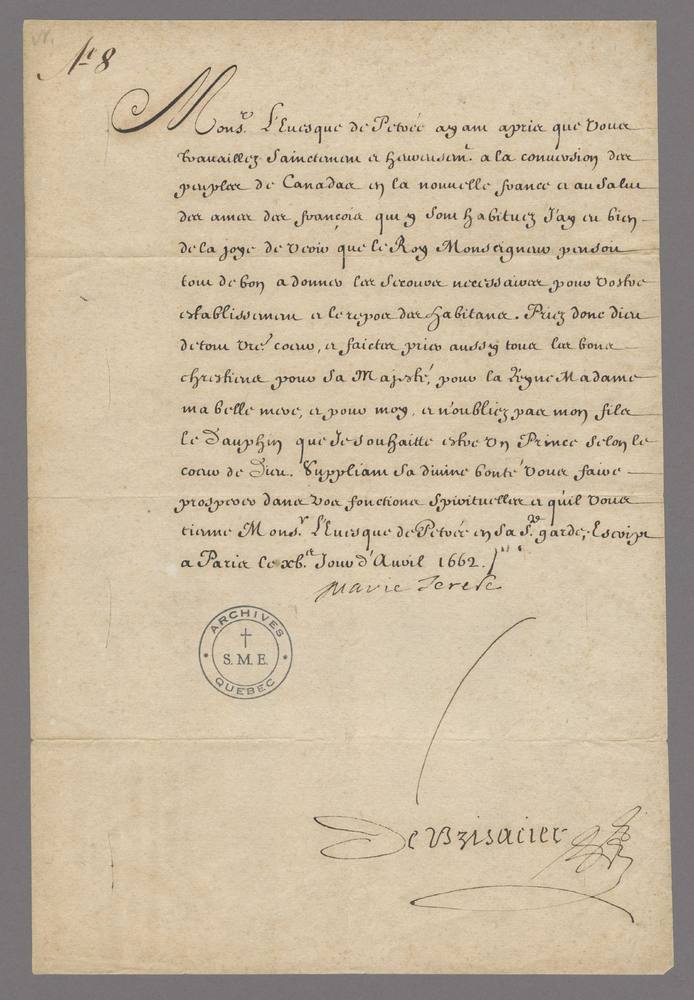 Nº 8
Monsr. L'Evesque de Petrée ayant apris que vous
travaillez sainctement et heureusemt. a la conversion des
peuples de Canadas en la nouvelle france et au salut
des ames des françois qui y sont habituez J'ay eu bien
de la joye de veoir que le Roy Monseigneur pensoit
tout de bon a donner les secours necessaires pour vostre
establissement et le repos des habitans. Priez donc dieu
de tout vre. coeur, et faictes prier aussy tous les bons
chrestiens pour sa Majesté, pour la Reyne Madame
ma belle mere, et pour moy, et n'oubliez pas mon fils
le Dauphin que Je souhaitte estre un Prince selon le
coeur de Dieu. Suppliant sa divine bonté vous faire
prosperer dans vos fonctions spirituelles et qu'il vous
tienne Monsr. L'Evesque de Petrée en sa Ste. garde, Escript
a Paris le Jour d'Avril 1662.
Marie Terese
ARCHIVES
S. M. E.
QUEBEC
De Brisacier